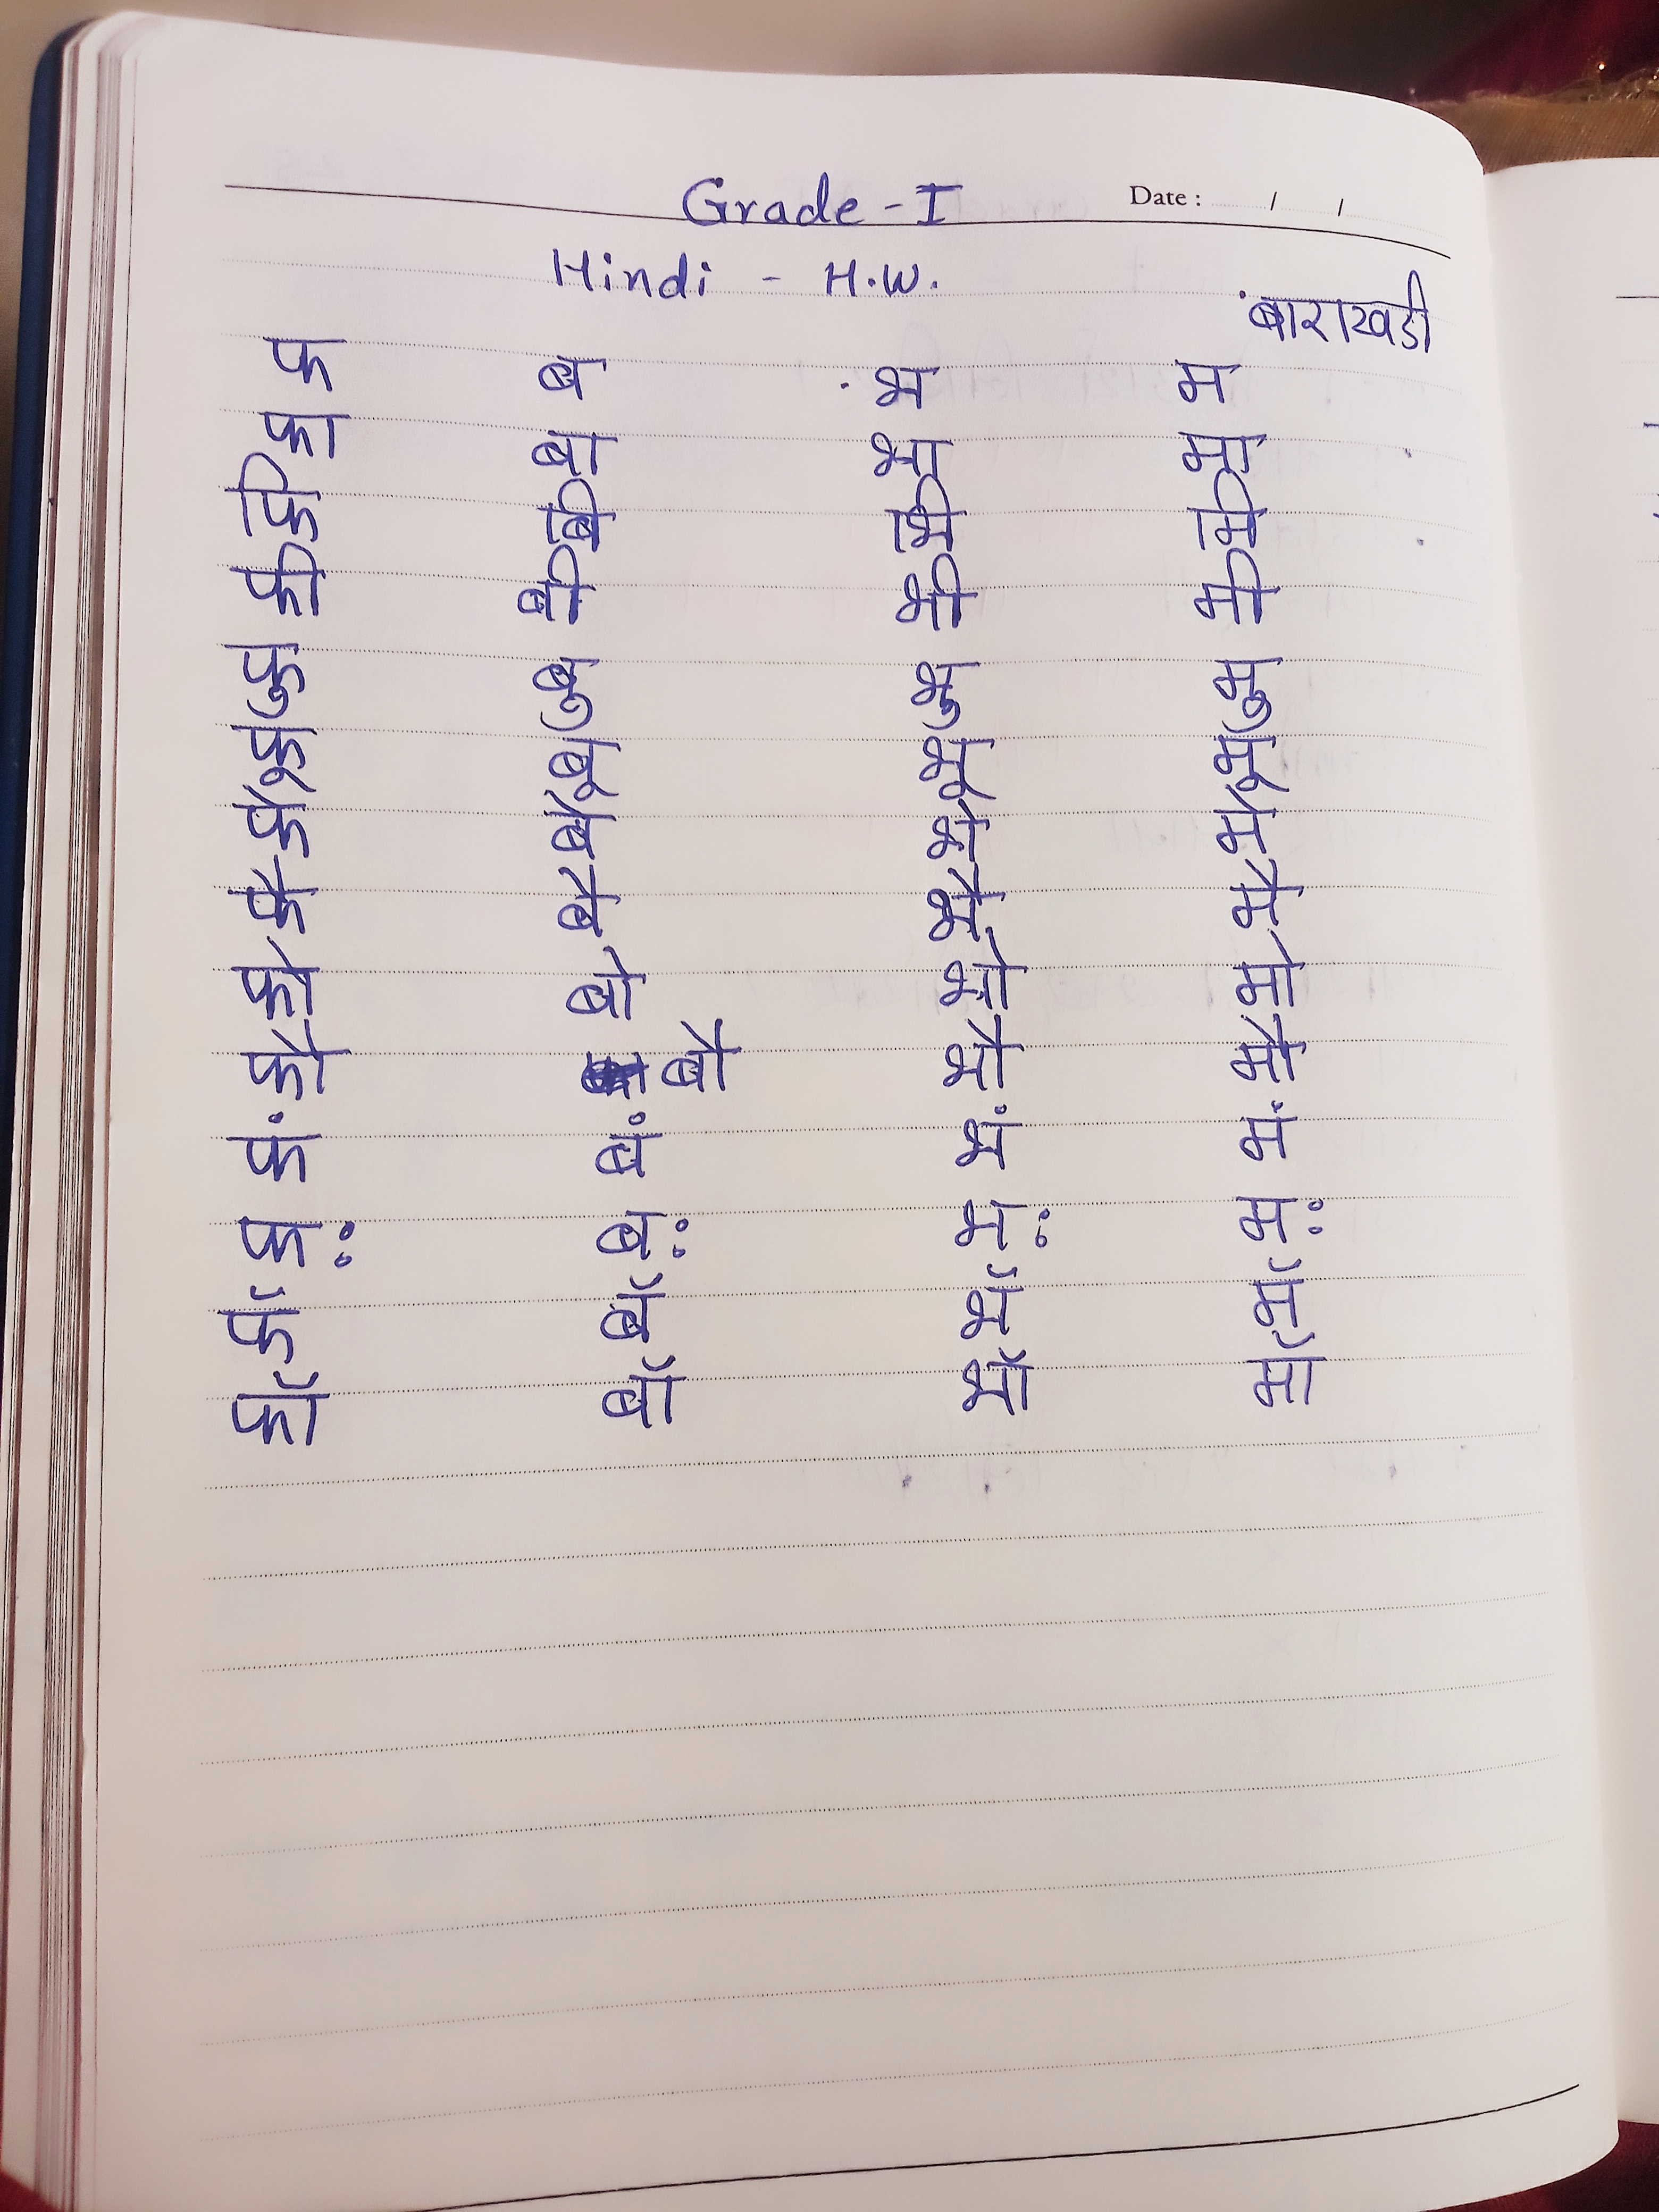 Grade - I
Date : / /
Hindi - H.W.
बाराखडी
फ ब भ म
फा बा भा मा
फि बि भि मि
फी बी भी मी
फु बु भु मु
फू बू भू मू
फे बे भे मे
फै बै भै मै
फो बो भो मो
फौ बौ भौ मौ
फं बं भं मं
फः बः भः मः
फॅ बॅ भॅ मॅ
फॉ बॉ भॉ मॉ